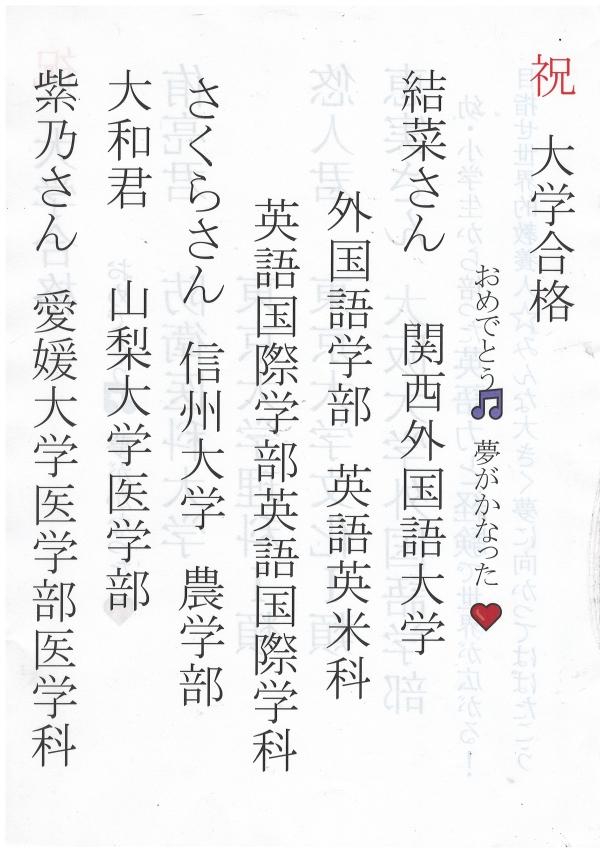 祝 大学合格
おめでとう 夢がかなった
結菜さん 関西外国語大学
外国語学部 英語英米科
英語国際学部英語国際学科
さくらさん 信州大学 農学部
大和君 山梨大学医学部
紫乃さん 愛媛大学医学部医学科